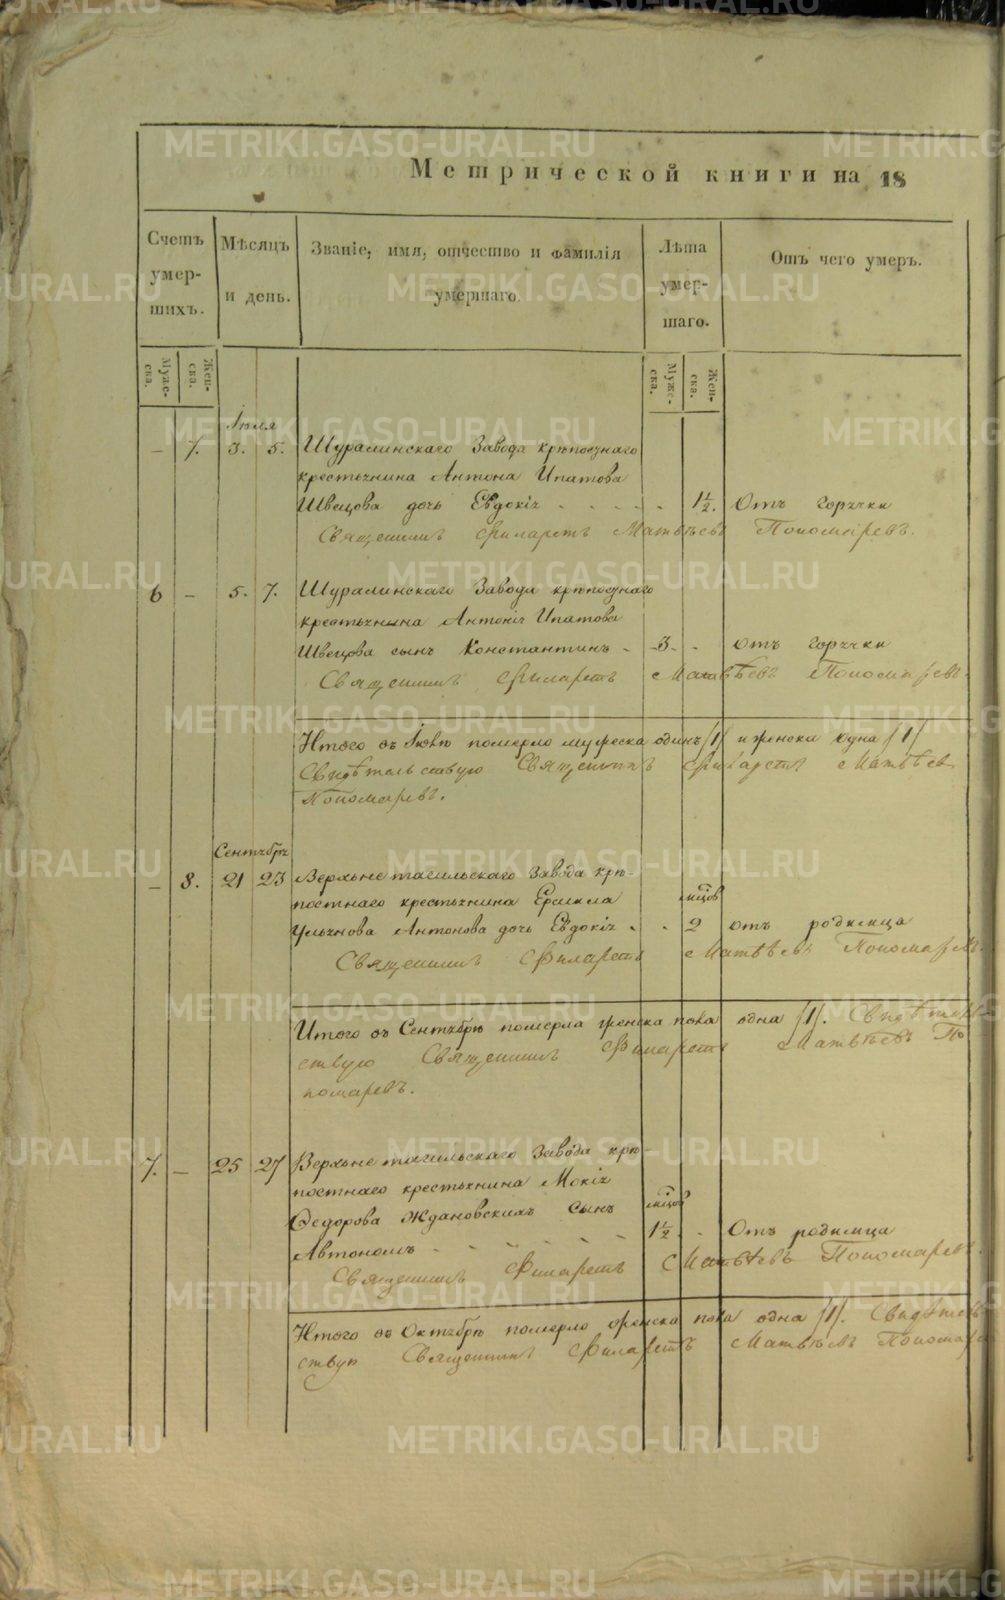 METRIKI.GASO-URAL.RU
Метрической книги на 18
Счетъ умер-шихъ.
Мѣсяцъ и день.
Званіе, имя, отчество и фамилія умершаго.
Лѣта умер-шаго.
Отъ чего умеръ.
Муже-ска.
Жен-ска.
Муже-ска.
Жен-ска.
Іюля
– 7. 3. 5. Шуралинскаго Завода крѣпостнаго
крестьянина Антона Ипатова
Швецова дочь Евдокія 1½. Отъ горячки
Священникъ Филаретъ Матвѣевъ Пономаревъ.
6 – 5. 7. Шуралинскаго Завода крѣпостнаго
крестьянина Антонія Ипатова
Швецова сынъ Константинъ 3 отъ горячки
Священникъ Филаретъ Матвѣевъ Пономаревъ.
Итого въ Іюлѣ померло мужеска одинъ /1/ и женска одна /1/
Свидѣтельствую Священникъ Филаретъ Матвѣевъ
Пономаревъ.
Сентября
– 8. 21 23 Верхнетагильскаго Завода крѣ-
постнаго крестьянина мѣсяцов
Ульянова Антонова дочь Евдокія 2 отъ родимца
Священникъ Филаретъ Матвѣевъ Пономаревъ.
Итого въ Сентябрѣ померла женска пола одна /1/. Свидѣтель
ствую Священникъ Филаретъ Матвѣевъ По
номаревъ.
7. – 25 27 Верхнетагильскаго Завода крѣ
постнаго крестьянина Мокія
Федорова Ждановскихъ сынъ мѣсяцов
Автономъ 1½ Отъ родимца
Священникъ Филаретъ Матвѣевъ Пономаревъ.
Итого въ Октябрѣ померло женска пола одна /1/. Свидѣтель
ствую Священникъ Филаретъ Матвѣевъ Пономарев